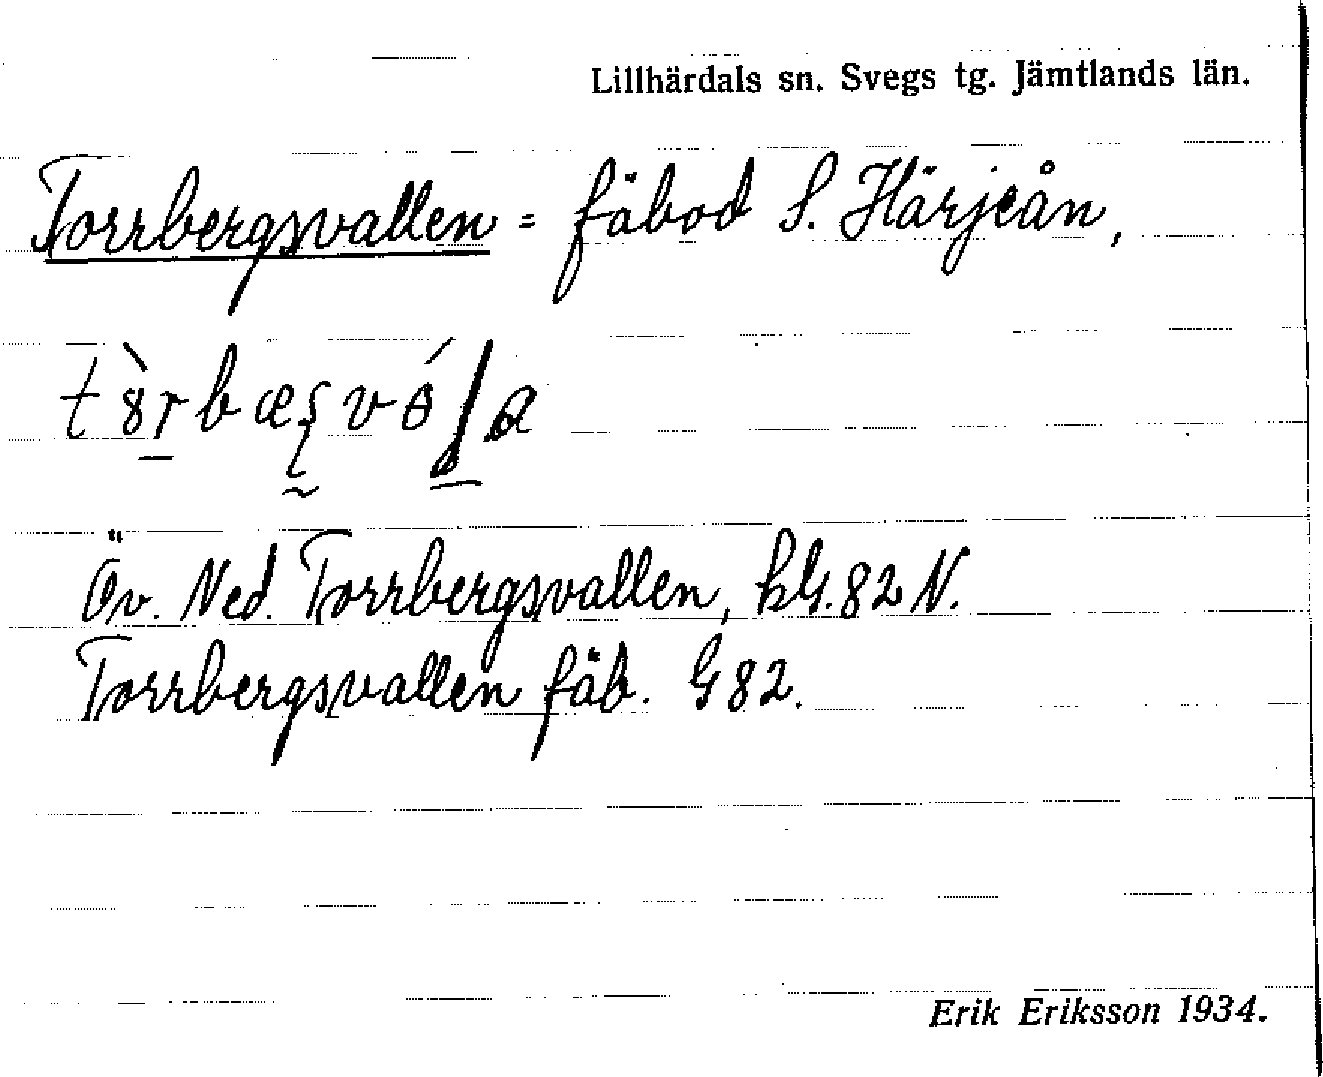 Lillhärdals sn. Svegs tg. Jämtlands län.
Torrbergsvallen = fäbod S. Härjeån,
Öv. Ned. Torrbergsvallen, hG.82 N.
Torrbergsvallen fäb. G 82.
Erik Eriksson 1934.